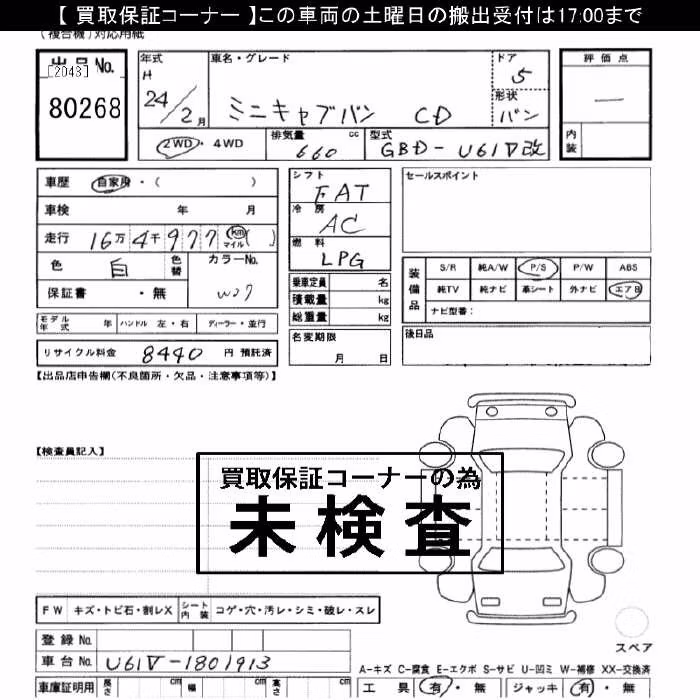 【 買取保証コーナー 】この車両の土曜日の搬出受付は17:00まで
(複合機)対応用紙
出品No.
[2043]
80268
年式
H
24/2月
車名・グレード
ミニキャブバン CD
ドア
5
形状
バン
評価点
―
内装
2WD・4WD
排気量 660 cc
型式 GBD-U61V改
車歴 自家用・( )
車検 年 月
走行 16万4千977 km マイル( )
色 白 色替
カラーNo. W07
保証書 ・無
シフト FAT
冷房 AC
燃料 LPG
セールスポイント
装備品
S/R 純A/W P/S P/W ABS
純TV 純ナビ 革シート 外ナビ エアB
ナビ型番：
乗車定員 名
積載量 kg
総重量 kg
モデル年式 年 ハンドル 左・右 ディーラー・並行
名変期限 月 日
後日品
リサイクル料金 8440 円 預託済
【出品店申告欄(不良箇所・欠品・注意事項等)】
【検査員記入】
買取保証コーナーの為
未検査
FW キズ・トビ石・割レX
シート内装 コゲ・穴・汚レ・シミ・破レ・スレ
スペア
登録No.
車台No. U61V-1801913
A-キズ C-腐食 E-エクボ S-サビ U-凹ミ W-補修 XX-交換済
車庫証明用 長さ cm 幅 cm 高さ cm
工具 有・無 ジャッキ 有・無